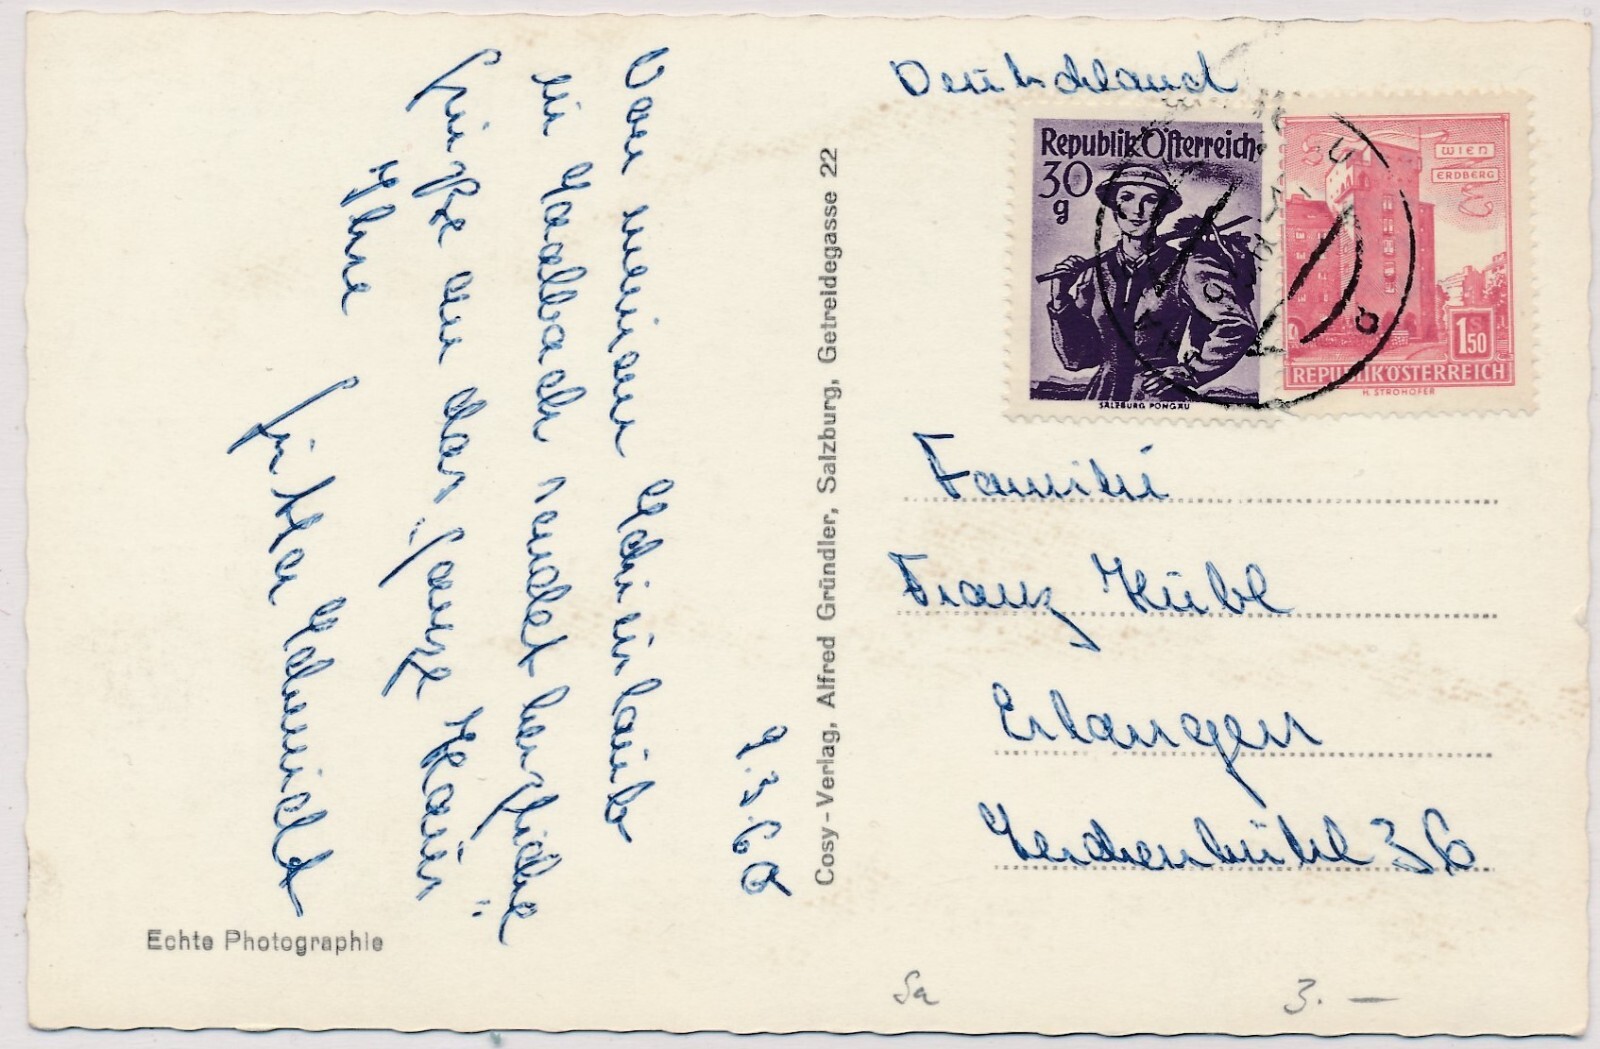 9.3.60
Von meinem Schiurlaub
in Saalbach sendet herzliche
Grüße an das "ganze Haus"
Ihre
Schmidt
Echte Photographie
Cosy-Verlag, Alfred Gründler, Salzburg, Getreidegasse 22
Deutschland
Republik Österreich
30
g
SALZBURG PONGAU
WIEN
ERDBERG
1 S 50
REPUBLIK ÖSTERREICH
H. STROHOFER
Familie
Franz Hübl
Erlangen
Lerchenbühl 36
Sa
3. —